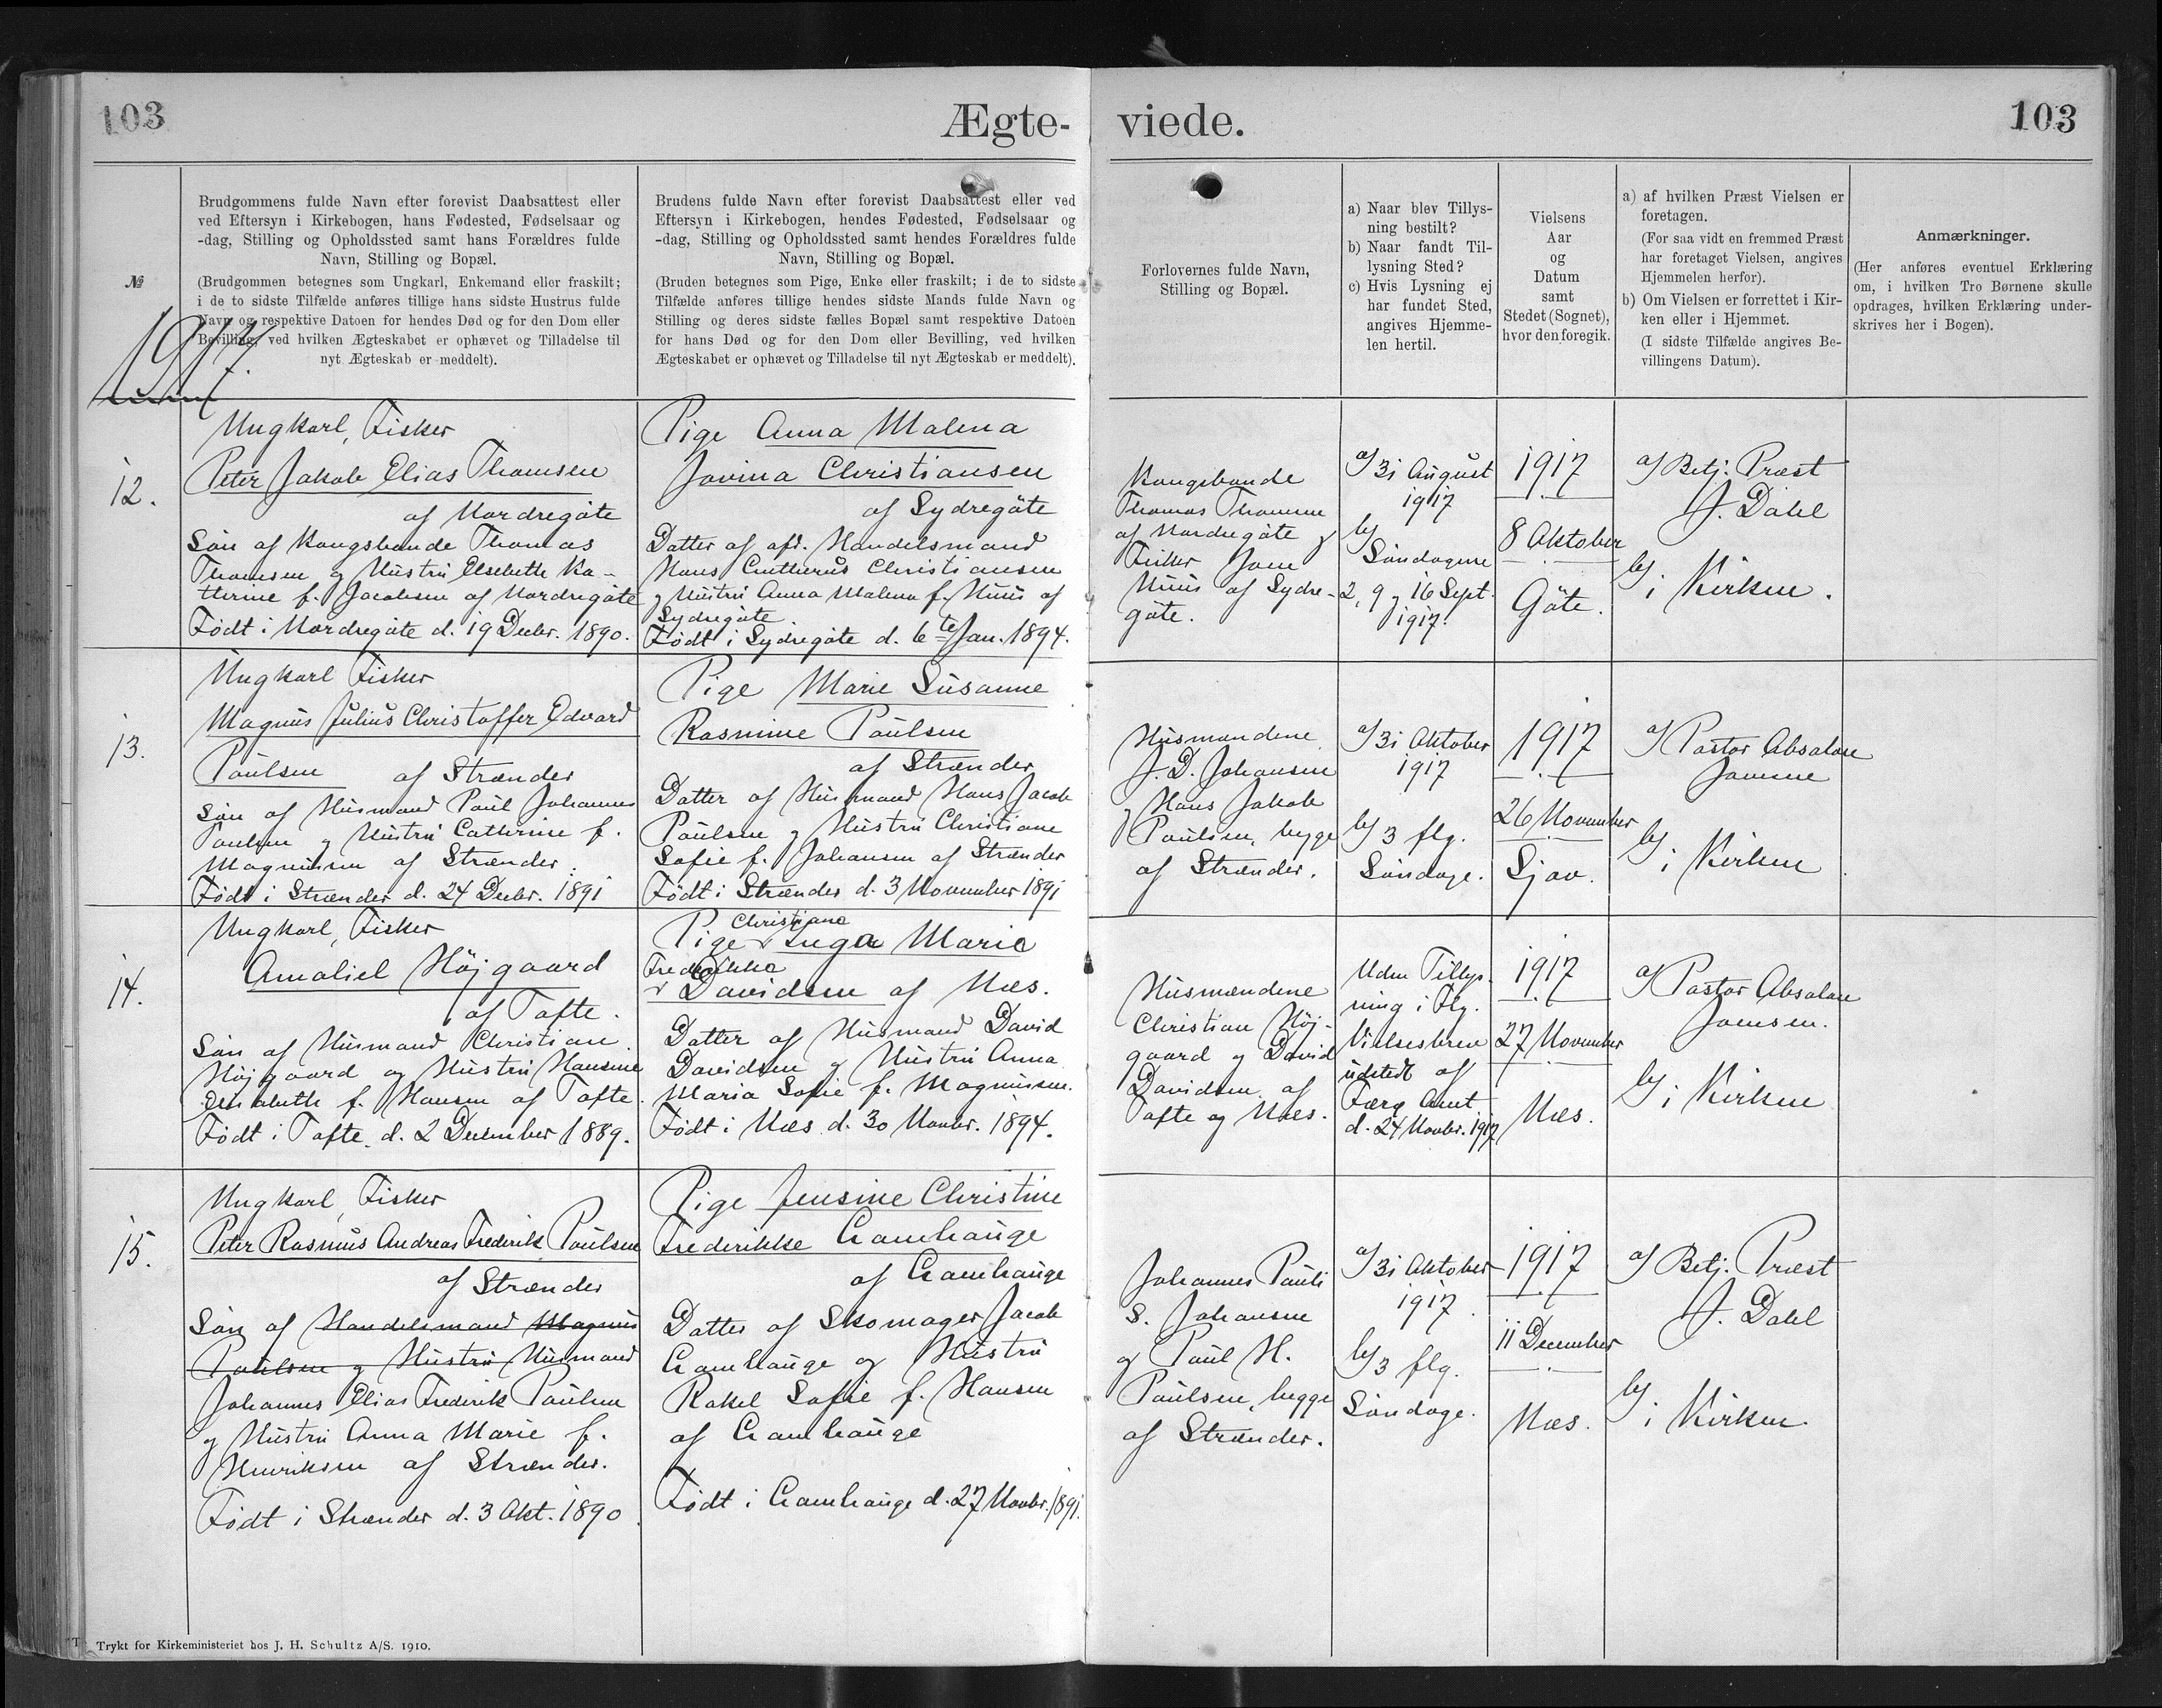 103
Ægte-
viede.
103
№
Brudgommens fulde Navn efter forevist Daabsattest eller
ved Eftersyn i Kirkebogen, hans Fødested, Fødselsaar og
-dag, Stilling og Opholdssted samt hans Forældres fulde
Navn, Stilling og Bopæl.
(Brudgommen betegnes som Ungkarl, Enkemand eller fraskilt;
i de to sidste Tilfælde anføres tillige hans sidste Hustrus fulde
Navn og respektive Datoen for hendes Død og for den Dom eller
Bevilling, ved hvilken Ægteskabet er ophævet og Tilladelse til
nyt Ægteskab er meddelt).
Brudens fulde Navn efter forevist Daabsattest eller ved
Eftersyn i Kirkebogen, hendes Fødested, Fødselsaar og
-dag, Stilling og Opholdssted samt hendes Forældres fulde
Navn, Stilling og Bopæl.
(Bruden betegnes som Pige, Enke eller fraskilt; i de to sidste
Tilfælde anføres tillige hendes sidste Mands fulde Navn og
Stilling og deres sidste fælles Bopæl samt respektive Datoen
for hans Død og for den Dom eller Bevilling, ved hvilken
Ægteskabet er ophævet og Tilladelse til nyt Ægteskab er meddelt).
Forlovernes fulde Navn,
Stilling og Bopæl.
a) Naar blev Tillys-
ning bestilt?
b) Naar fandt Til-
lysning Sted?
c) Hvis Lysning ej
har fundet Sted,
angives Hjemme-
len hertil.
Vielsens
Aar
og
Datum
samt
Stedet (Sognet),
hvor den foregik.
a) af hvilken Præst Vielsen er
foretagen.
(For saa vidt en fremmed Præst
har foretaget Vielsen, angives
Hjemmelen herfor).
b) Om Vielsen er forrettet i Kir-
ken eller i Hjemmet.
(I sidste Tilfælde angives Be-
villingens Datum).
Anmærkninger.
(Her anføres eventuel Erklæring
om, i hvilken Tro Børnene skulle
opdrages, hvilken Erklæring under-
skrives her i Bogen).
1917.
12.
Ungkarl, Fisker
Peter Jakob Elias Thomsen
af Nordregøte
Søn af Kongsbonde Thomas
Thomsen og Hustru Elsebeth Ka-
therine f. Jacobsen af Nordregøte
Født i Nordregøte d. 19 Decbr. 1890.
Pige Anna Malena
Jovina Christiansen
af Sydregøte
Datter af afd. Handelsmand
Hans Christiansen
og Hustru Anna Malena f. Huus af
Sydregøte
Født i Sydregøte d. 6te Jan. 1894.
Kongsbonde
Thomas Thomsen
af Nordregøte og
Fisker Joen
Huus af Sydre-
gøte.
a/ 31 August
1917
b/
Søndagene
2, 9 og 16 Sept.
1917.
1917
8 Oktober
Gøte.
a/ Betj. Præst
J. Dahl
b/ i Kirken.
13.
Ungkarl Fisker
Magnus Julius Christoffer Edvard
Poulsen af Strænder
Søn af Husmand Poul Johannes
Poulsen og Hustru Cathrine f.
Magnussen af Strænder.
Født i Strænder d. 24 Decbr. 1891
Pige Marie Susanne
Rasmine Poulsen
af Strænder
Datter af Husmand Hans Jacob
Poulsen og Hustru Christiane
Sofie f. Johansen af Strænder
Født i Strænder d. 3 November 1891
Husmændene
J. D. Johansen
og Hans Jakob
Poulsen, begge
af Strænder.
a/ 31 Oktober
1917
b/ 3 flg.
Søndage.
1917
26 November
Sjov.
a/ Pastor Absalon
Joensen
b/ i Kirken
14.
Ungkarl, Fisker
Amaliel Højgaard
af Tofte.
Søn af Husmand Christian
Højgaard og Hustru Hansine
Elisabeth f. Hansen af Tofte.
Født i Tofte d. 2 December 1889.
Christiane
Pige v Inga Marie
Frederikke
v Davidsen af Næs.
Datter af Husmand David
Davidsen og Hustru Anna
Maria Sofie f. Magnussen.
Født i Næs d. 30 Novbr. 1894.
Husmændene
Christian Høj-
gaard og David
Davidsen af
Tofte og Næs.
Uden Tillys-
ning i Flg.
Vielsesbrev
udstedt af
Færø Amt
d. 24 Novbr. 1917
1917
27 November
Næs.
a/ Pastor Absalon
Joensen.
b/ i Kirken
15.
Ungkarl, Fisker
Peter Rasmus Andreas Frederik Poulsen
af Strænder
Søn af Handelsmand Magnus
Poulsen og Hustru Husmand
Johannes Elias Frederik Poulsen
og Hustru Anna Marie f.
Henriksen af Strænder.
Født i Strænder d. 3 Okt. 1890.
Pige Jensine Christine
Frederikke Lamhauge
af Lamhauge
Datter af Skomager Jacob
Lamhauge og Hustru
Rakel Sofie f. Hansen
af Lamhauge
Født i Lamhauge d. 27 Novbr. 1891.
Johannes Pauli
S. Johansen
og Poul H.
Poulsen, begge
af Strænder.
a/ 31 Oktober
1917.
b/ 3 flg.
Søndage.
1917
11 December
Næs.
a/ Betj. Præst
J. Dahl
b/ i Kirken.
Trykt for Kirkeministeriet hos J. H. Schultz A/S. 1910.